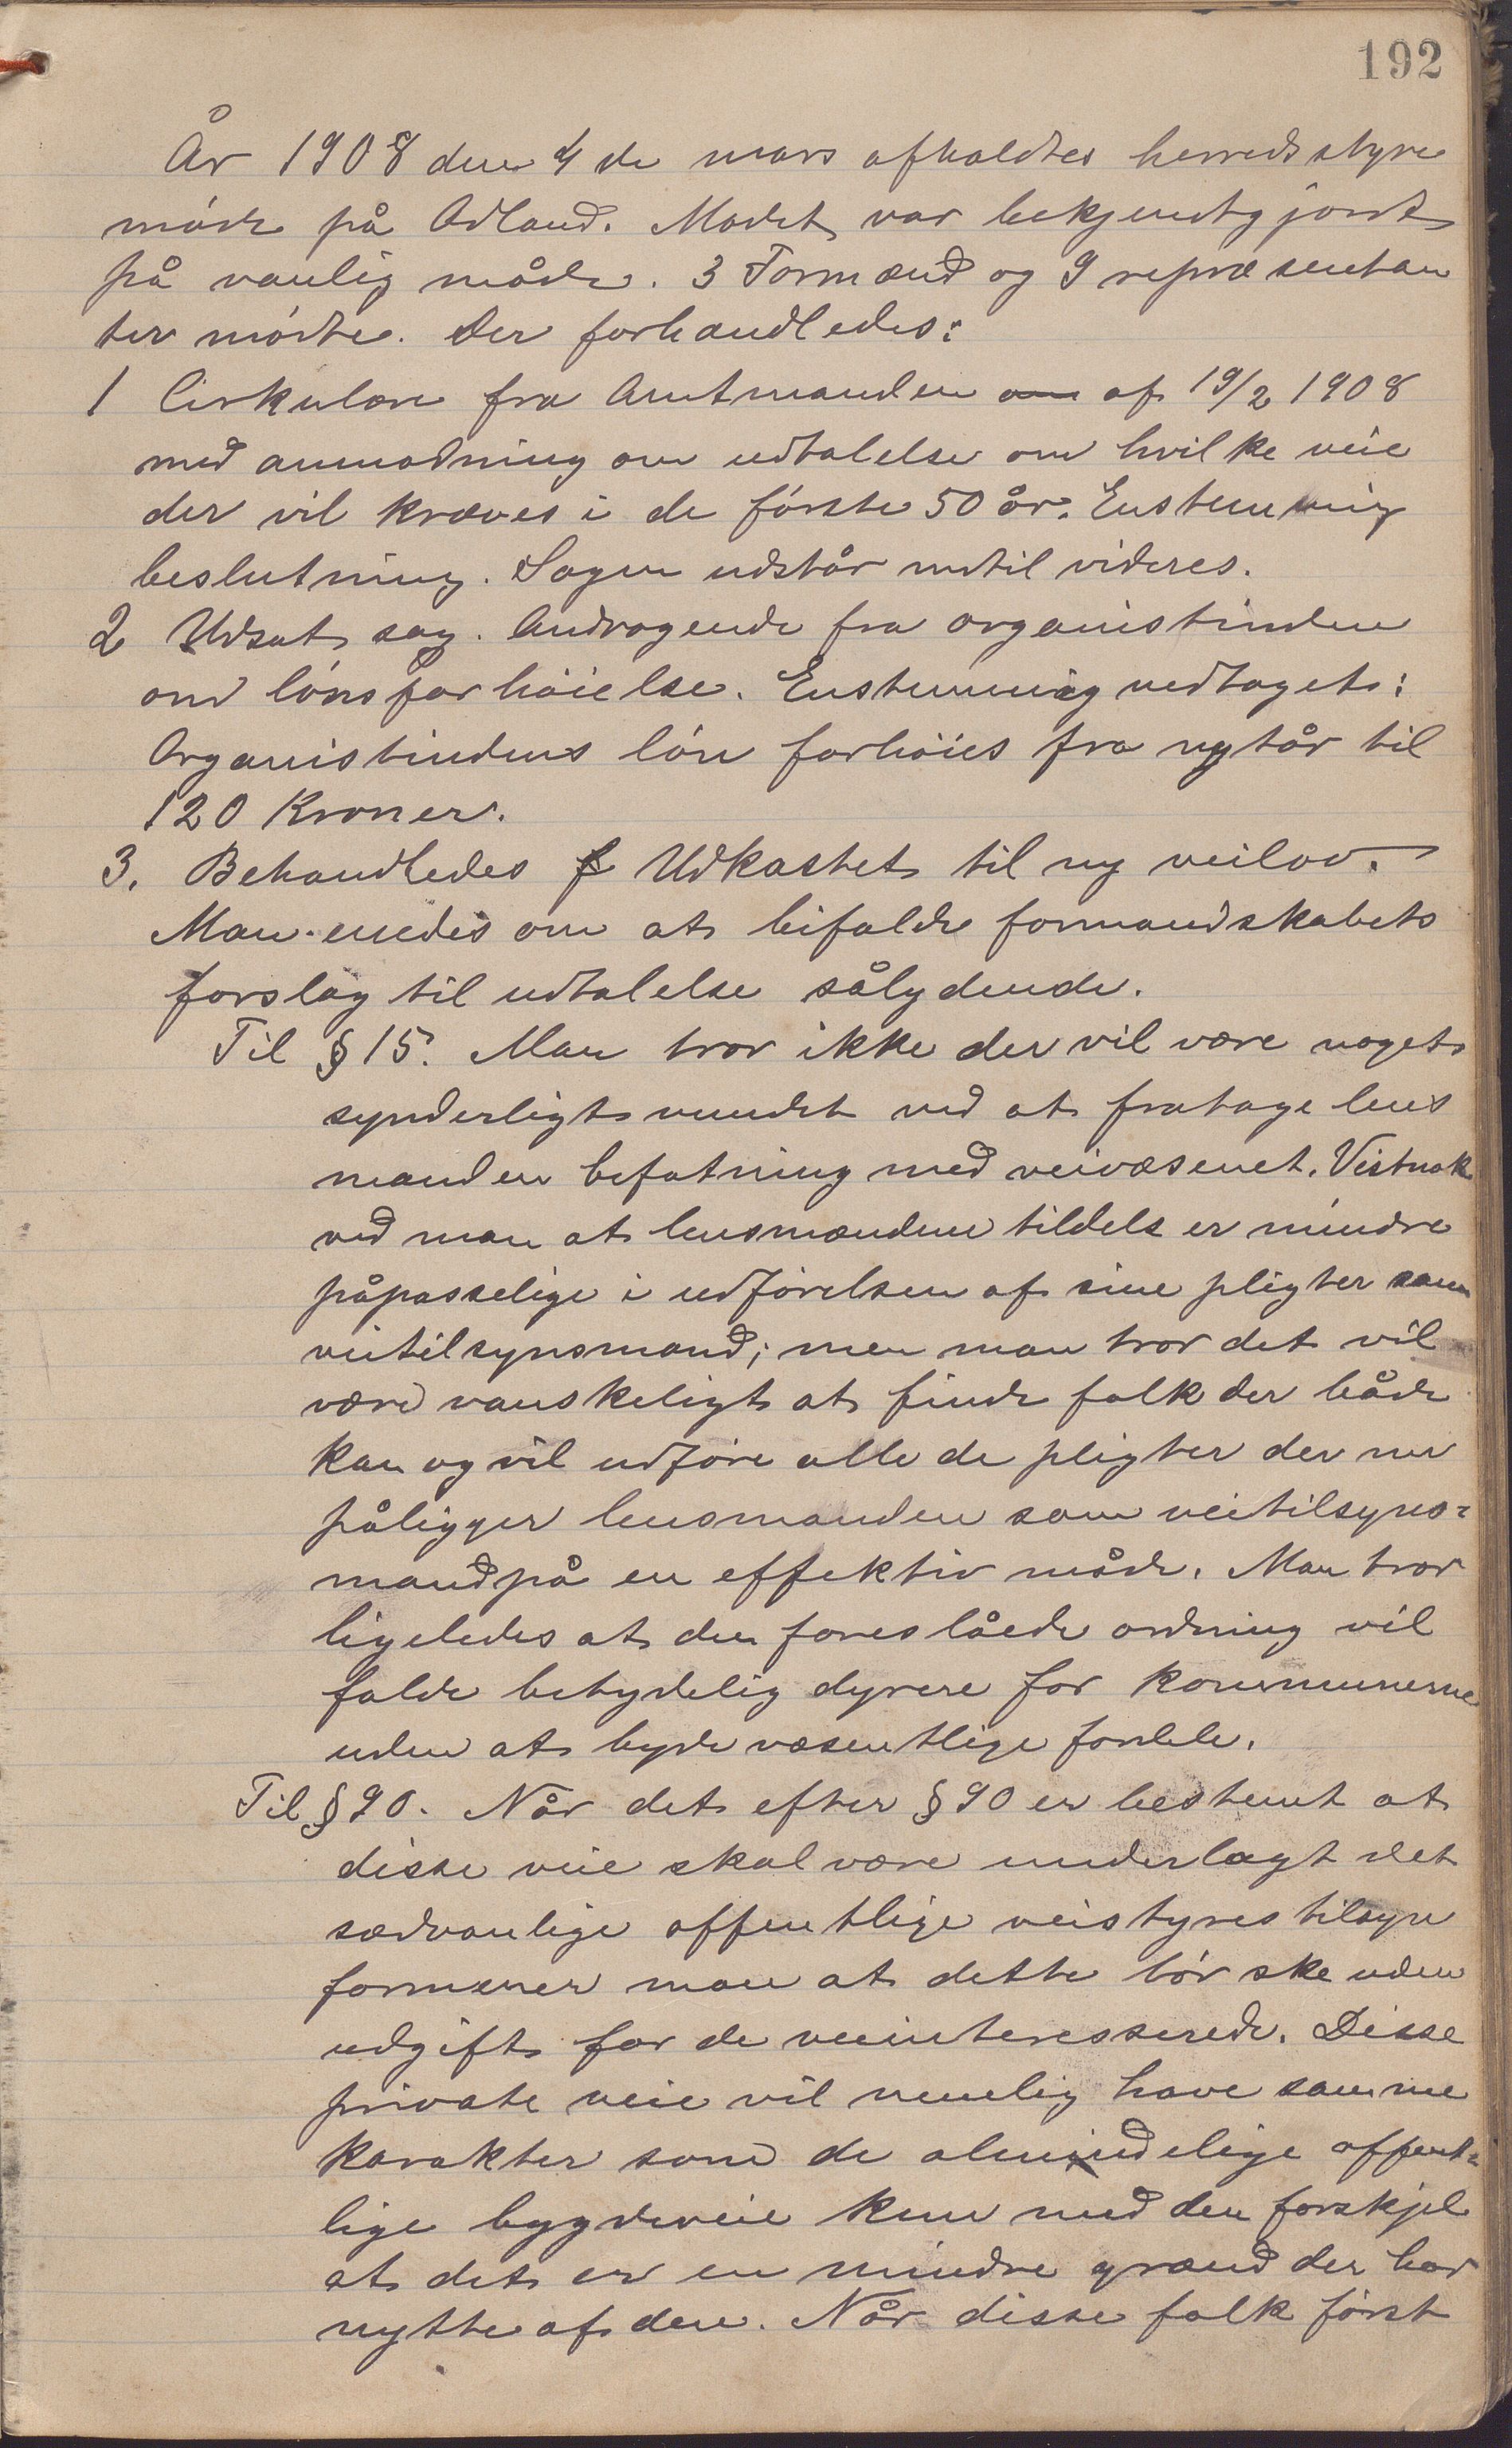 192
År 1908 den 4 de mars afholdtes herredsstyre
møde på Adland. Mødet var bekjendtgjordt
på vanlig måde. 3 Formænd og 9 repræsentan
ter mødte. Der forhandledes:
1 Cirkulære fra Amtmanden om af 19/2 1908
med anmodning om udtalelse om hvilke veie
der vil kræves i de første 50 år. Enstemmig
beslutning. Sagen udstår indtil videres.
2 Udsat sag. Andragende fra organistinden
om lønsforhøielse. Enstemmig vedtaget:
Organistindens løn forhøies fra nytår til
120 Kroner.
3. Behandledes f Udkastet til ny veilov.
Man enedes om at bifalde formandskabets
forslag til udtalelse sålydende.
Til § 15. Man tror ikke der vil være noget
synderligt vundet ved at fratage lens
manden befatning med veivæsenet. Vistnok
ved man at lensmændene tildels er mindre
påpasselige i udførelsen af sine pligter som
veitilsynsmand; men man tror det vil
være vanskeligt at finde folk der både
kan og vil udføre alle de pligter der nu
påligger lensmanden som veitilsyns-
mand på en effektiv måde. Man tror
ligeledes at den foreslåede ordning vil
falde betydelig dyrere for kommunerne
uden at byde væsentlige fordele.
Til § 90. Når det efter § 90 er bestemt at
disse veie skal være underlagt det
sædvanlige offentlige veistyres tilsyn
formener man at dette bør ske uden
udgift for de veiinteresserede. Disse
private veie vil nemlig have samme
karakter som de almindelige offent-
lige bygdeveie kun med den forskjel
at det er en mindre grænd der har
nytte af den. Når disse folk først